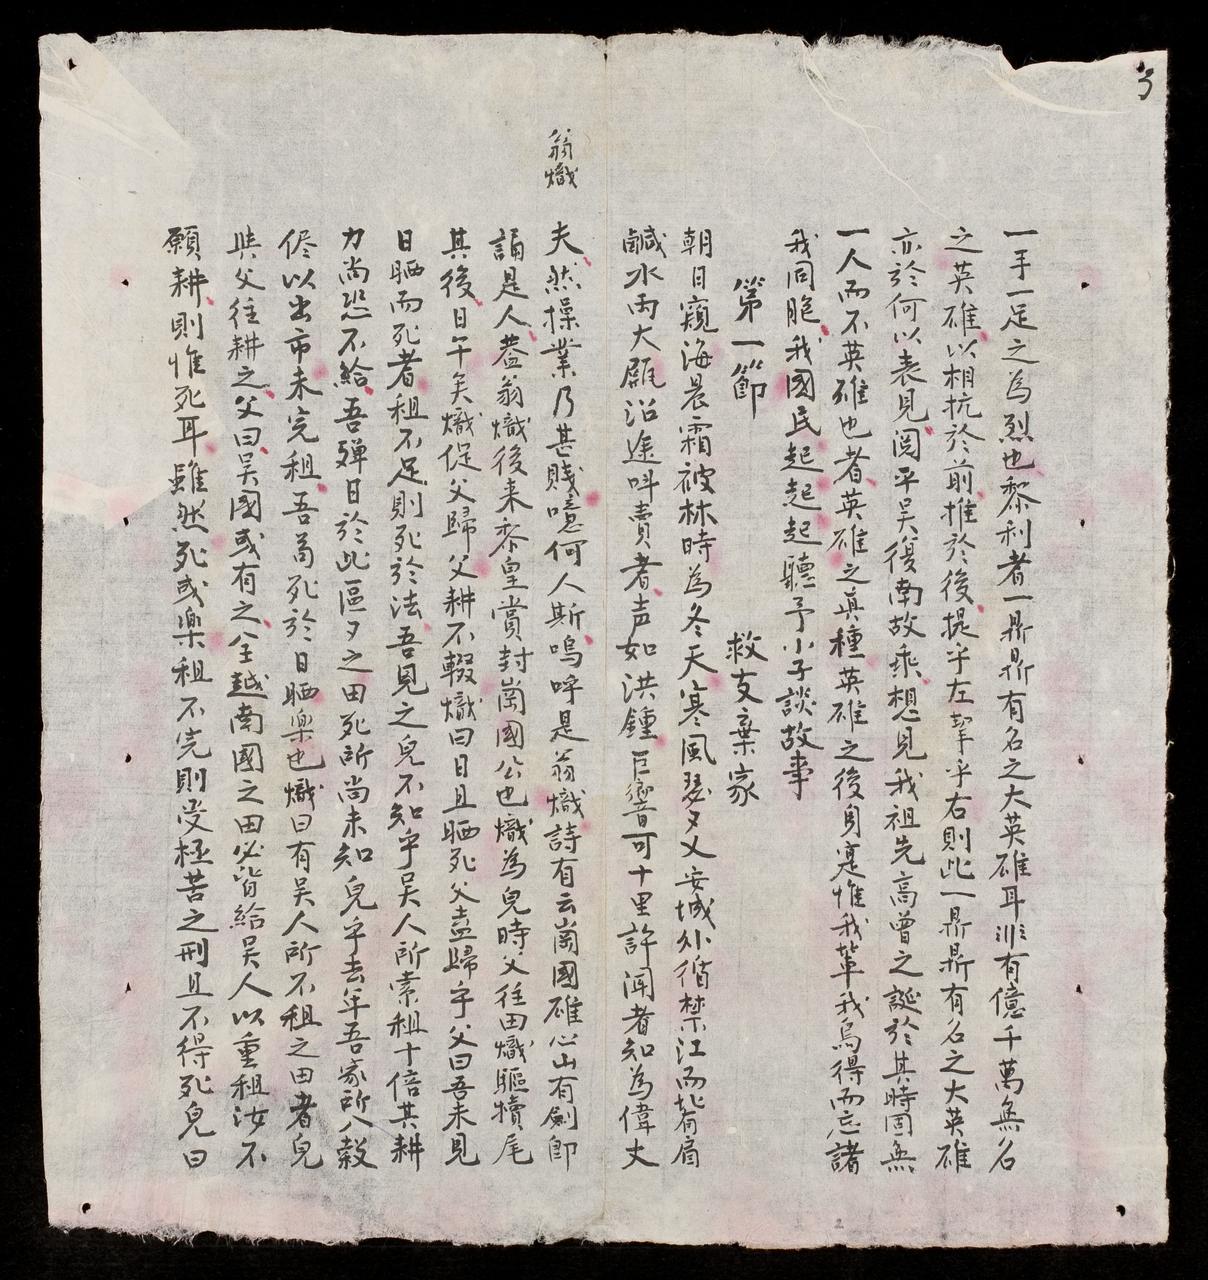 3
一手一足之為烈也黎利者一鼎鼎有名之大英雄耳非有億千萬無名
之英雄以相抗於前推於後提乎左挈乎右則此一鼎鼎有名之大英雄
亦於何以表見閱平吳復南故乘想見我祖先高曾之誕於其時固無
一人而不英雄也者英雄之真種英雄之後身寔惟我輩我烏得而忘諸
我同胞我國民起起起聽予小子談故事
第一節 救友棄家
朝日窺海晨霜被林時為冬天寒風瑟夕乂安城外循禁江而背肩
鹹水兩大甂沿途呌賣者声如洪鍾巨響可十里許闻者知為偉丈
翁熾
夫然操業乃甚賤噫何人斯嗚呼是翁熾詩有云崗國雄心山有劍即
誦是人蓋翁熾後来黎皇賞封崗國公也熾為兒時父往田熾驅犢尾
其後日午矣熾促父歸父耕不輟熾曰日且晒死父盍歸乎父曰吾未見
日晒而死者租不足則死於法吾見之兒不知乎吳人所索租十倍其耕
力尚恐不給吾殫日於此區夕之田死所尚未知兒乎去年吾家所入穀
侭以出市未完租吾苟死於日晒樂也熾曰有吳人所不租之田者兒
與父往耕之父曰吳國或有之全越南國之田必皆給吳人以重租汝不
願耕則惟死耳雖然死或樂租不完則受極苦之刑且不得死兒曰